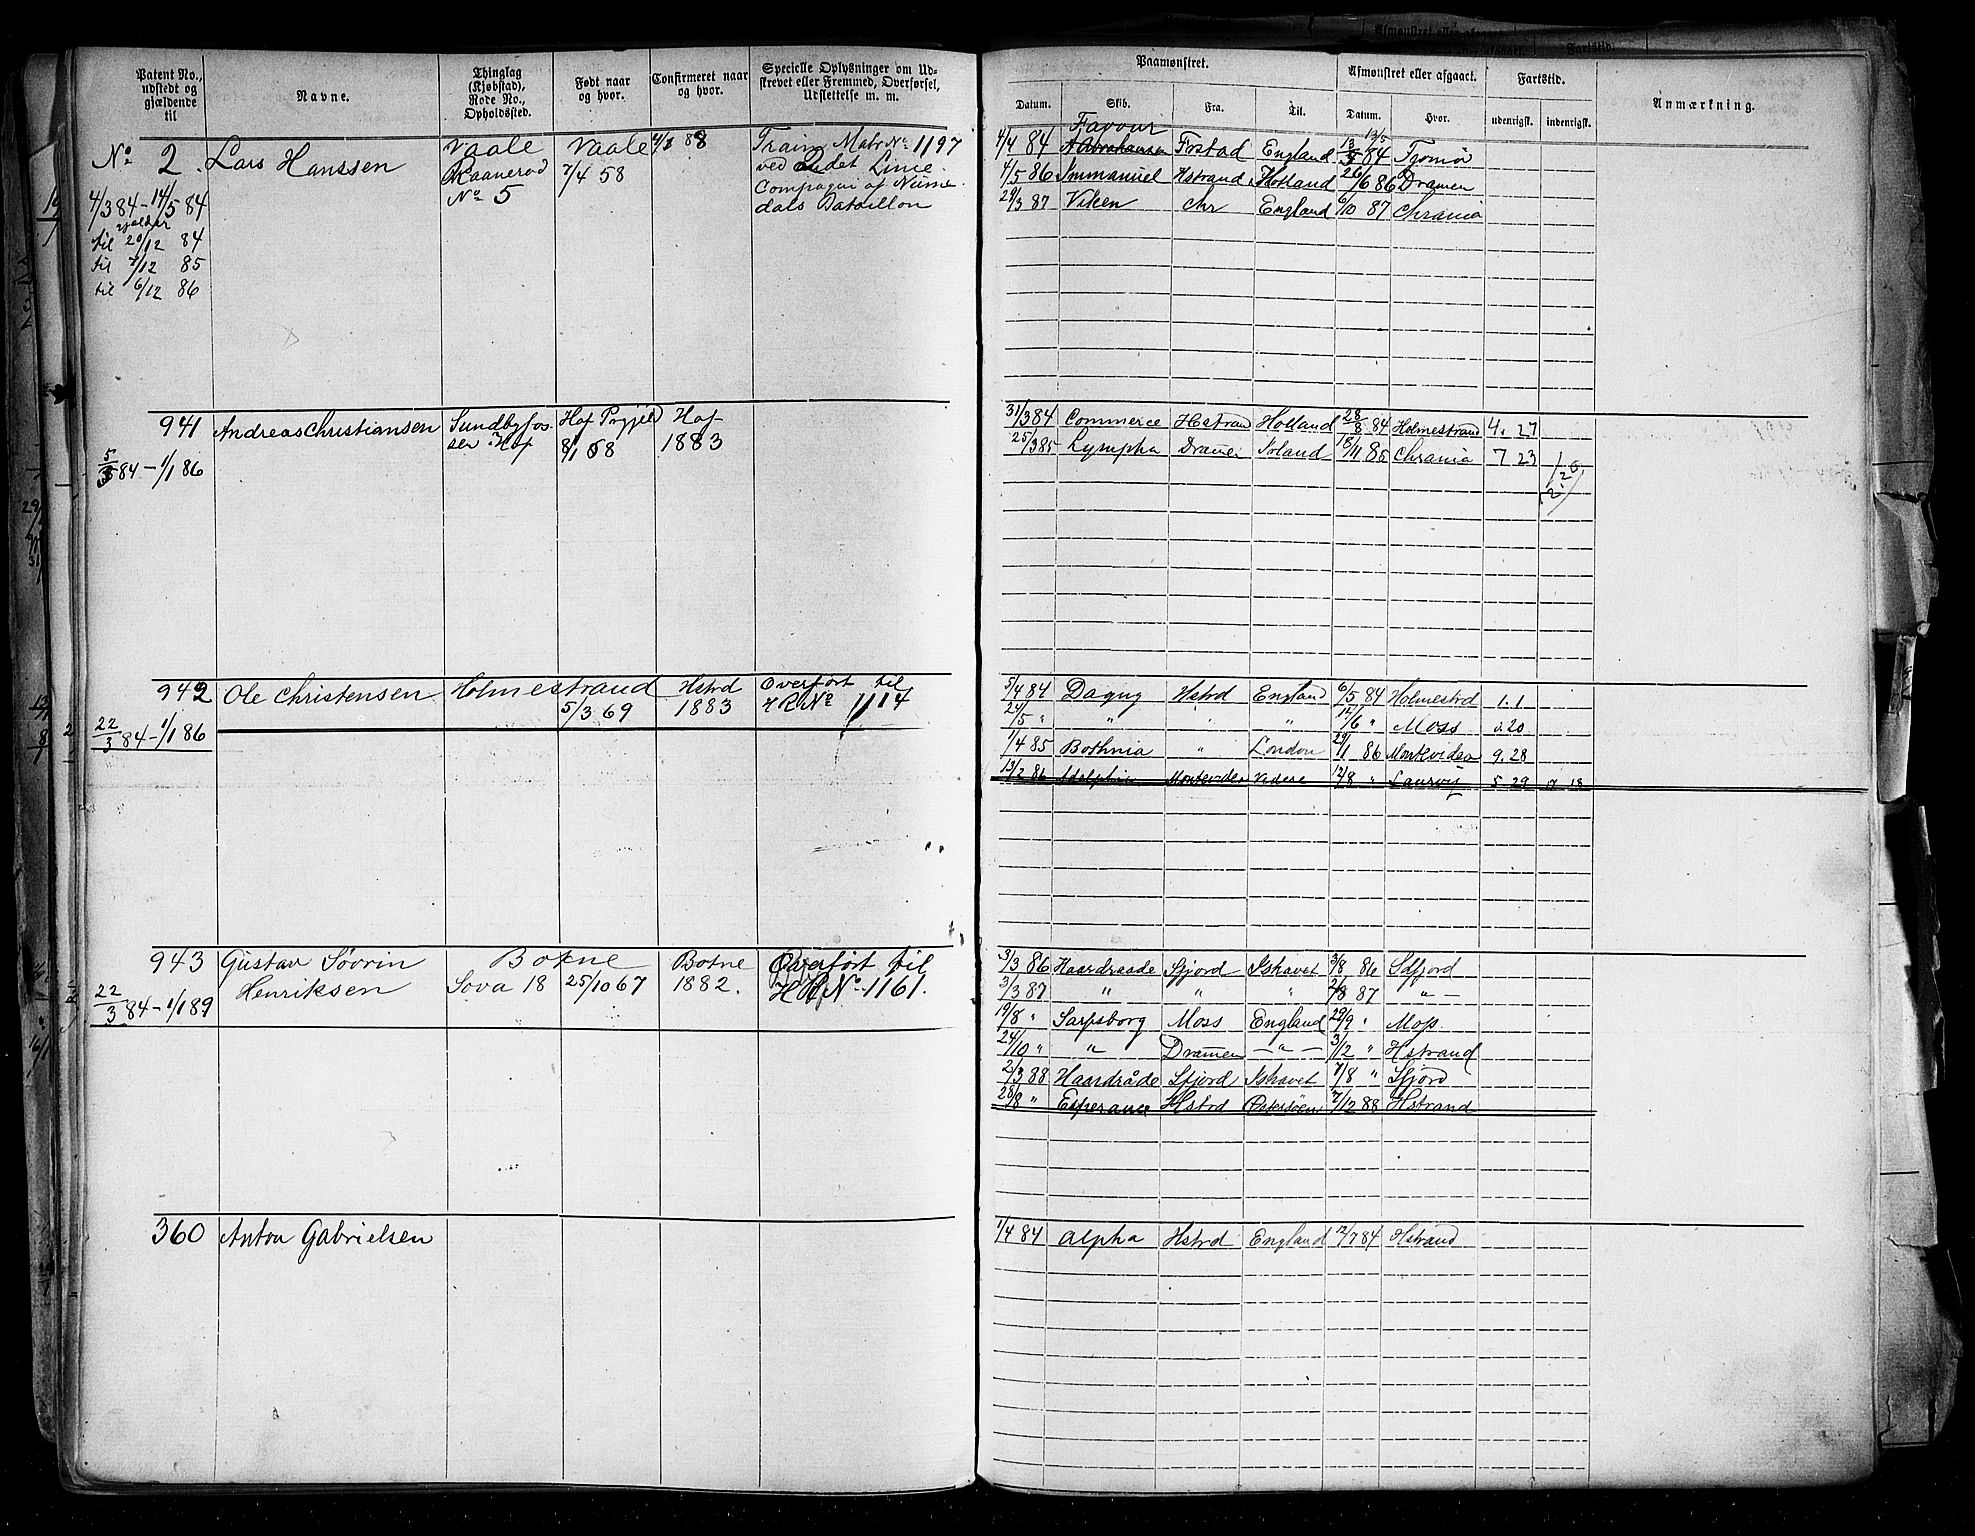 Patent No., udstedt og gjældende til
Navne.
Thinglag (Kjøbstad), Rode No., Opholdssted.
Født naar og hvor.
Confirmeret naar og hvor.
Specielle Oplysninger om Udskrevet eller Fremmed, Overførsel, Udslettelse m. m.
Paamønstret.
Afmønstret eller afgaaet.
Fartstid.
Anmærkning.
Datum. Skib. Fra. Til. Datum. Hvor. udenrigsk. indenrigsk.
No 2. Lars Hanssen Vaale Vaale Train Mabr No 1197
Raanerød 7/4 58 ved 2det Linie
No 5 Compagni af Nume
dals Bataillon
4/3 84 - 14/5 84
gjelder
til 20/12 84
til 7/12 85
til 6/12 86
Favour
4/4 84 A Abrahamsen Frstad England 13/5 84 Tjømø
4/5 86 Immanuel Hstrand Holland 26/6 86 Dramen
29/3 87 Viken Chr England 6/10 87 Chrania
941 Andreas Christiansen Sundbyfos- Hof Prgjeld Hof
sen Hof 8/1 68 1883
5/3 84 - 1/1 86
31/3 84 Commerce Hstrand Holland 28/8 84 Holmestrand 4. 27
25/3 85 Lympha Drame Holand 18/11 85 Chrania 7 23
942 Ole Christensen Holmestrand Hstrd Overført til
5/3 69 1883 HRNo 1114
22/3 84 - 1/1 86
5/4 84 Dagny Hstrd England 6/5 84 Holmestrd 1. 1
24/5 " " " " 14/6 " Moss 0.20
1/4 85 Bothnia " London 29/1 86 Montevideo 9. 28
13/2 86 Adelphia Montevideo Videre 12/8 " Laurvig 5. 29
943 Gustav Søvrin Botne Botne Overført til
Henriksen Sova 18 25/10 67 1882. HRNo 1161.
22/3 84 - 1/1 89
3/3 86 Haardraade Sfjord Ishavet 3/8 86 Sdfjord
3/3 87 " " " 2/8 87 " -
19/8 " Sarpsborg Moss England 29/9 " Moss
24/10 " " Dramen - " - 3/12 " Hstrand
2/3 88 Haardråde Sfjord Ishavet 7/8 " Sfjord
28/8 " Esperance Hstrd Østersøen 7/12 88 Hstrand
360 Anton Gabrielsen
1/4 84 Alpha Hstrd England 12/7 84 Hstrand